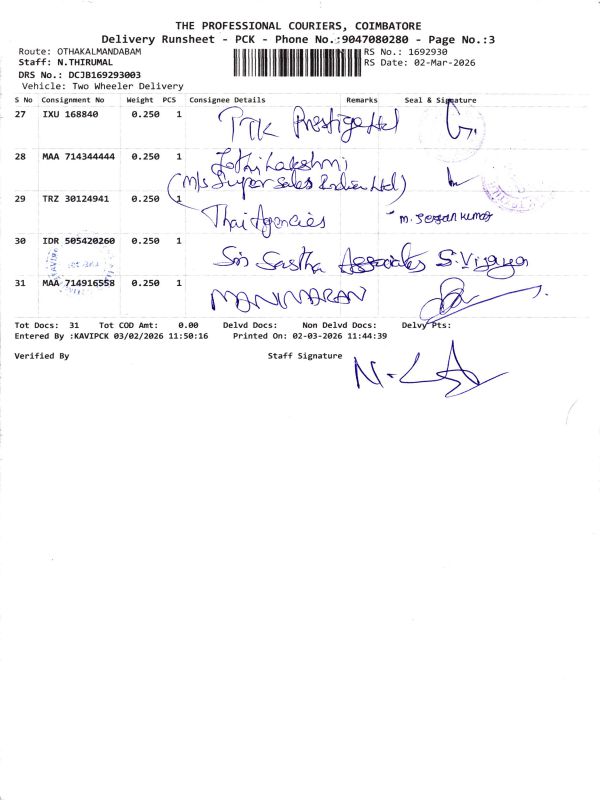 THE PROFESSIONAL COURIERS, COIMBATORE
Delivery Runsheet - PCK - Phone No.:9047080280 - Page No.:3
Route: OTHAKALMANDABAM RS No.: 1692930
Staff: N.THIRUMAL RS Date: 02-Mar-2026
DRS No.: DCJB169293003
Vehicle: Two Wheeler Delivery
S No Consignment No Weight PCS Consignee Details Remarks Seal & Signature
27 IXU 168840 0.250 1 PTK Prestige Ltd
28 MAA 714344444 0.250 1 Jothi Lakshmi
(M/s Super Sales India Ltd)
29 TRZ 30124941 0.250 1 Thai Agencies M. Jegan Kumar
30 IDR 505420260 0.250 1 Sri Sastha Associates S. Vijaya
31 MAA 714916558 0.250 1 MANIMARAN
Tot Docs: 31 Tot COD Amt: 0.00 Delvd Docs: Non Delvd Docs: Delvy Pts:
Entered By :KAVIPCK 03/02/2026 11:50:16 Printed On: 02-03-2026 11:44:39
Verified By Staff Signature